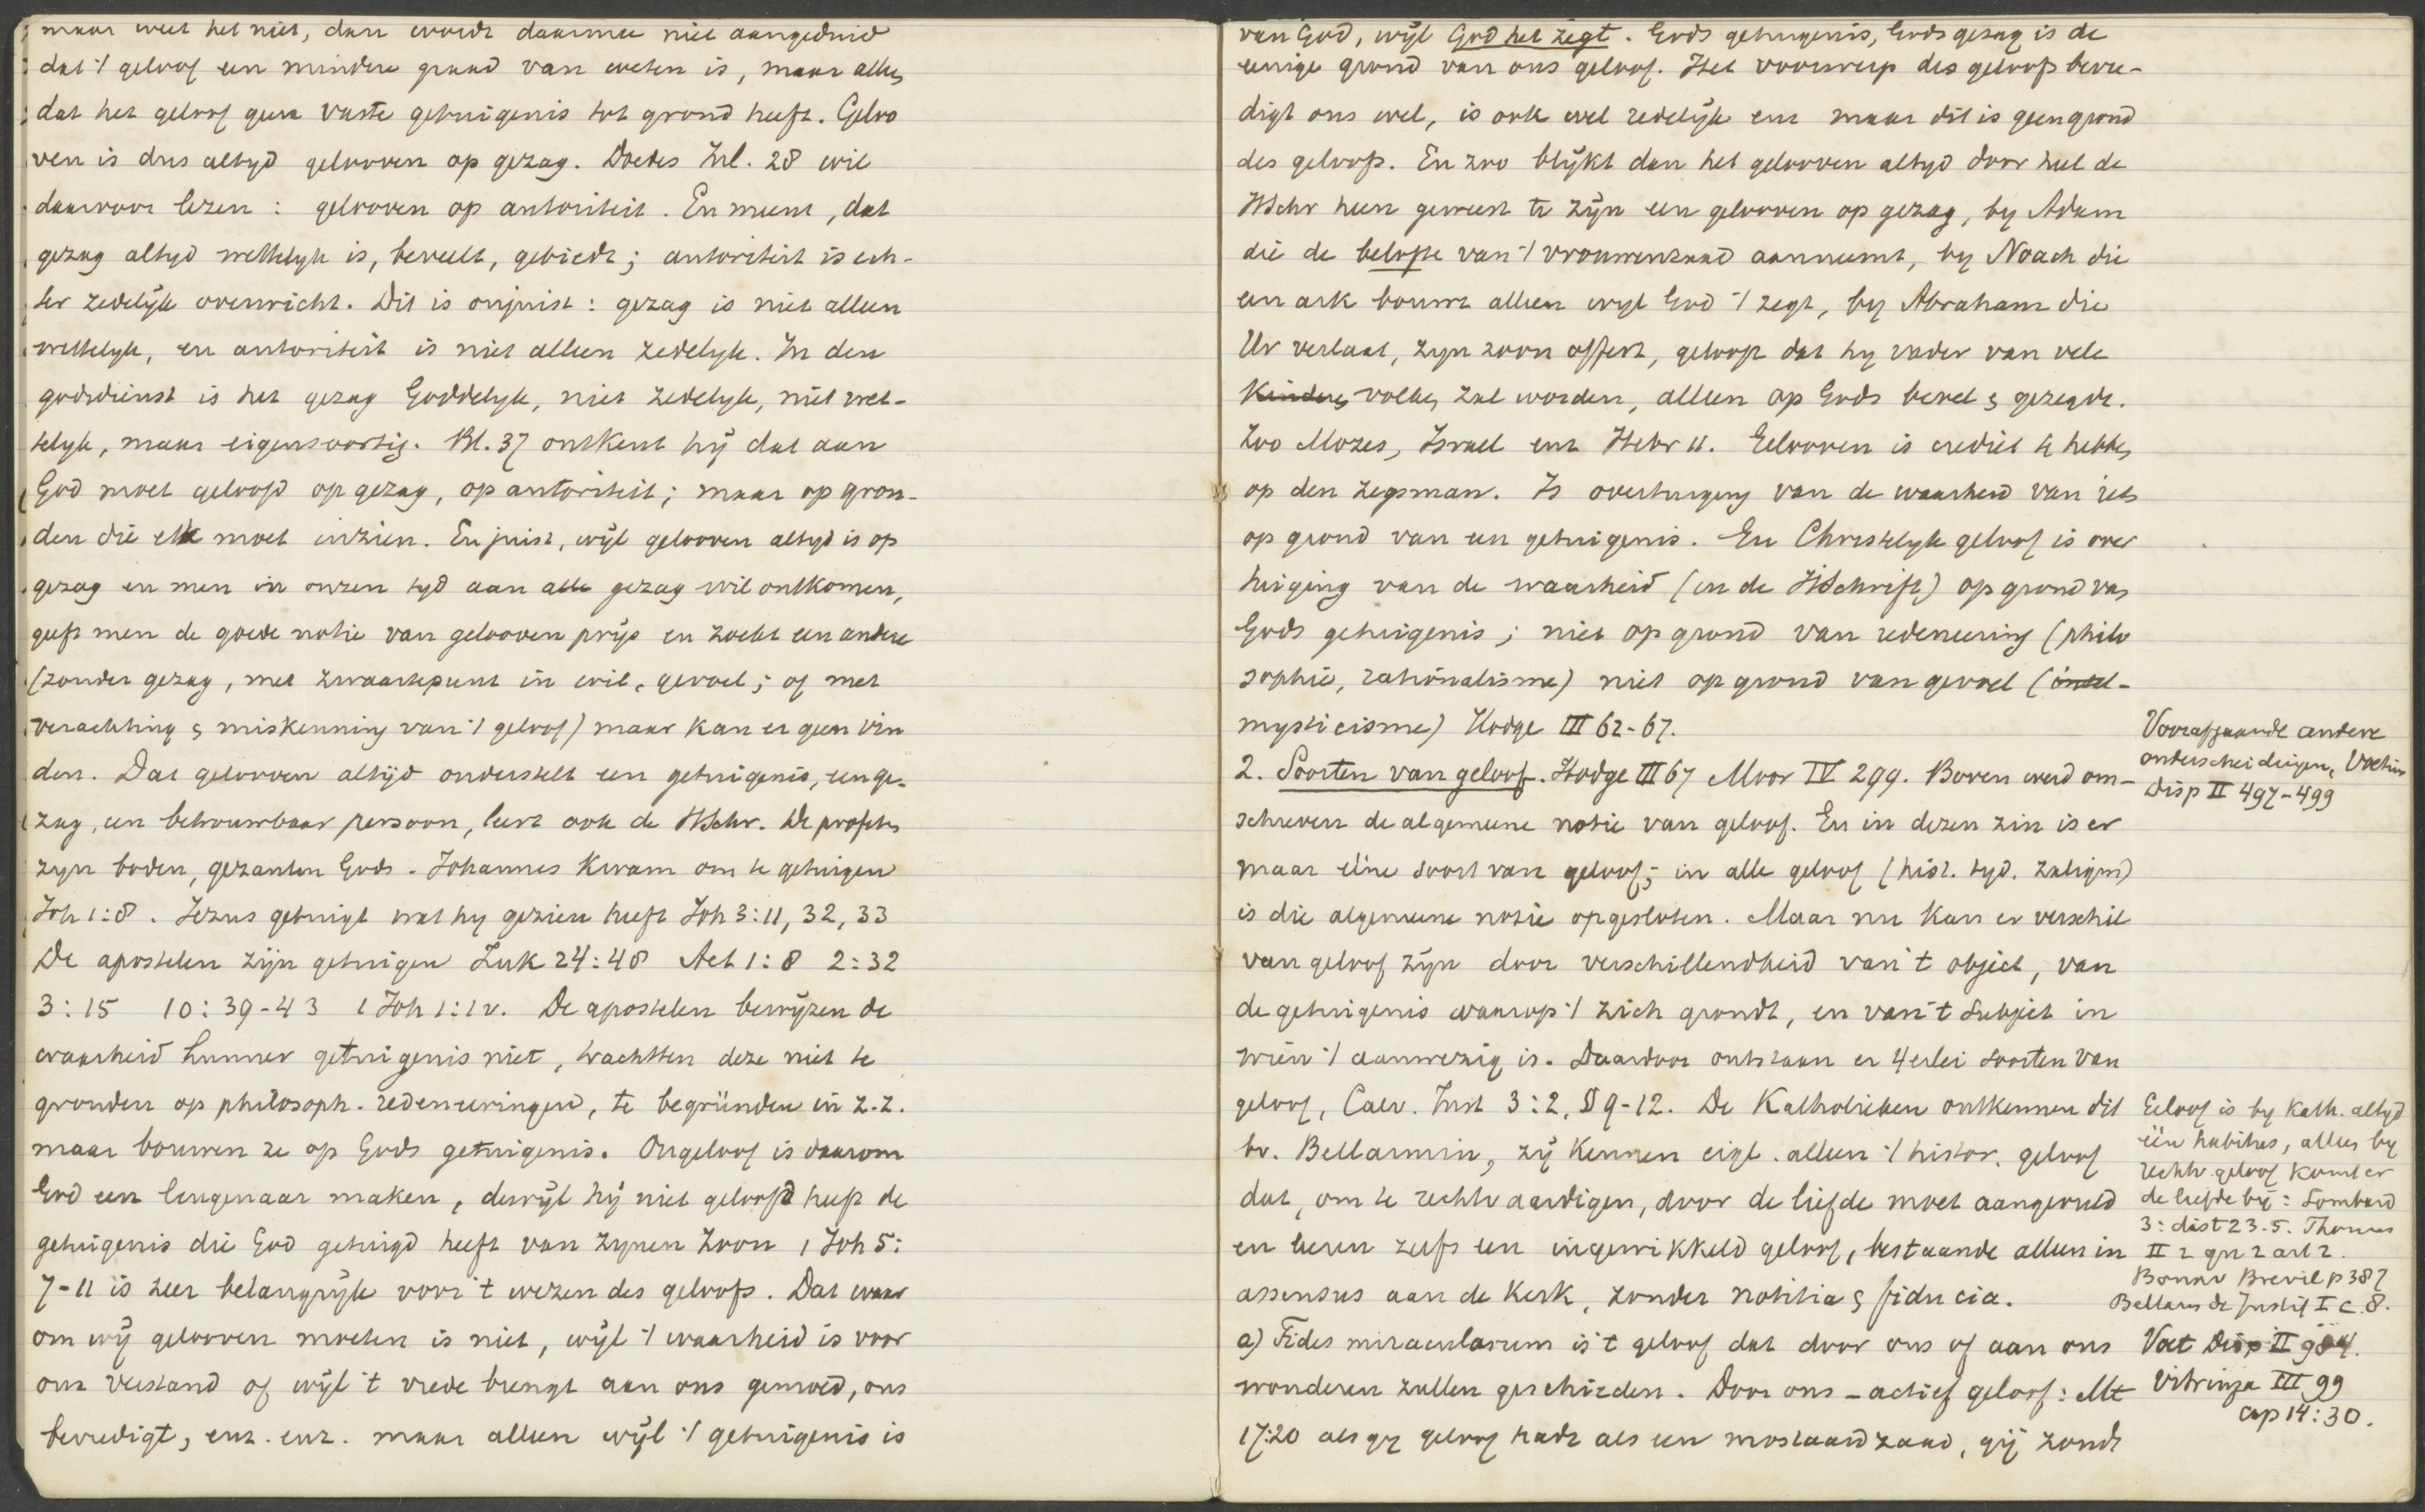 maar weet het niet, dan wordt daarmee niet aangeduid
dat 't geloof een mindere graad van weten is, maar alleen
dat het geloof geen vaste getuigenis tot grond heeft. Geloo
ven is dus altyd gelooven op gezag. Doedes Inl. 28 wil
daarvoor lezen : gelooven op autoriteit. En meent, dat
gezag altyd wettelyk is, beveelt, gebiedt; autoriteit is ech-
ter zedelijk overwicht. Dit is onjuist : gezag is niet alleen
wettelyk, en autoriteit is niet alleen zedelyk. In den
godsdienst is het gezag Goddelyk, niet zedelyk, niet wet-
telyk, maar eigensoortig. Bl. 37 ontkent hij dat aan
God moet geloofd op gezag, op autoriteit; maar op gron-
den die elk moet inzien. En juist, wijl gelooven altyd is op
gezag en men in onzen tyd aan alle gezag wil ontkomen,
geeft men de goede notie van gelooven prijs en zoekt een andere
(zonder gezag, met zwaartepunt in wil, gevoel; of met
verachting & miskenning van 't geloof) maar kan er geen vin
den. Dat gelooven altijd onderstelt een getuigenis, een ge-
zag, een betrouwbaar persoon, leert ook de HSchr. De profeten
zyn boden, gezanten Gods. Johannes kwam om te getuigen
Joh 1:8. Jezus getuigt wat hy gezien heeft Joh 3:11, 32, 33
De apostelen zijn getuigen Luk 24:48 Act 1:8 2:32
3:15 10:39-43 1 Joh 1:1v. De apostelen bewyzen de
waarheid hunner getuigenis niet, trachtten deze niet te
gronden op philosoph. redeneeringen, te begründen in z.z.
maar bouwen ze op Gods getuigenis. Ongeloof is daarom
God een leugenaar maken, dewijl hij niet geloofd heeft de
getuigenis die God getuigd heeft van zynen Zoon 1 Joh 5:
7-11 is zeer belangrijk voor 't wezen des geloofs. Dat waar
om wij gelooven moeten is niet, wijl 't waarheid is voor
ons verstand of wijl 't vrede brengt aan ons gemoed, ons
bevredigt, enz. enz. maar alleen wijl 't getuigenis is
van God, wijl God het zegt. Gods getuigenis, Gods gezag is de
eenige grond van ons geloof. Het voorwerp des geloofs bevre-
digt ons wel, is ook wel redelijk enz maar dit is geen grond
des geloofs. En zoo blijkt dan het gelooven altyd door heel de
HSchr heen geweest te zijn een gelooven op gezag, by Adam
die de belofte van 't vrouwenzaad aanneemt, by Noach die
een ark bouwt alleen wyl God 't zegt, by Abraham die
Ur verlaat, zyn zoon offert, gelooft dat hy vader van vele
kinderen volken zal worden, alleen op Gods bevel & gezegde.
Zoo Mozes, Israel enz Hebr 11. Gelooven is crediet te hebben
op den zegsman. Is overtuiging van de waarheid van iets
op grond van een getuigenis. En Christelyk geloof is over
tuiging van de waarheid (in de HSchrift) op grond van
Gods getuigenis; niet op grond van redeneering (philo
sophie, rationalisme) niet op grond van gevoel (intel-
mysticisme) Hodge III 62-67.
2. Soorten van geloof. Hodge III 67 Moor IV 299. Boven werd om-
schreven de algemeene notie van geloof. En in dezen zin is er
maar ééne soort van geloof; in alle geloof (hist. tyd. zaligm)
is die algemeene notie opgesloten. Maar nu kan er verschil
van geloof zijn door verschillendheid van 't object, van
de getuigenis waarop 't zich grondt, en van 't subject in
wien 't aanwezig is. Daardoor ontstaan er 4erlei soorten van
geloof, Calv. Inst 3:2, § 9-12. De Katholieken ontkennen dit
bv. Bellarmin, zij kennen eigl. alleen 't histor. geloof
dat, om te rechtvaardigen, door de liefde moet aangevuld
en leeren zelfs een ingewikkeld geloof, bestaande alleen in
assensus aan de Kerk, zonder notitia & fiducia.
a) Fides miraculorum is 't geloof dat door ons of aan ons
wonderen zullen geschieden. Door ons - actief geloof: Mt
17:20 als gy geloof hadt als een mostaardzaad, gij zoudt
Voorafgaande andere
onderscheidingen, Voetius
Disp II 497-499
Geloof is by Kath. altyd
één habitus, alleen by
rechtv. geloof komt er
de liefde bij: Lombard
3: dist 23.5. Thomas
II 2 qu 2 art 2.
Bonav Brevil p 387
Bellarm de Justif I c. 8.
Voet Disp II
Vitringa III 99
cap 14:30.